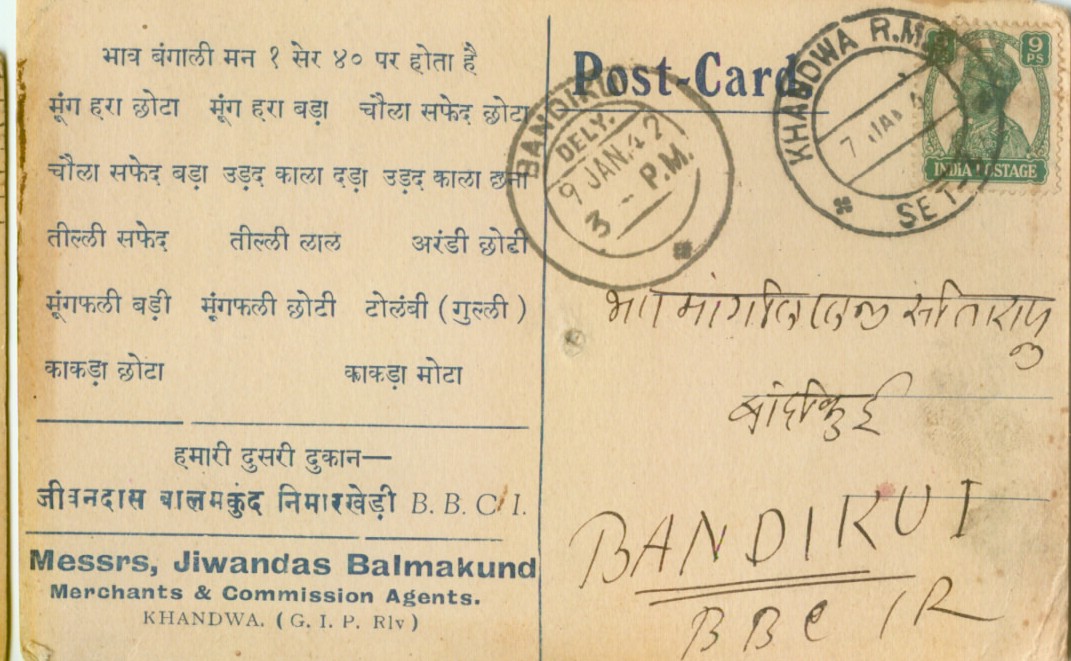 भाव बंगाली मन १ सेर ४० पर होता है
मूंग हरा छोटा मूंग हरा बड़ा चौला सफेद छोटा
चौला सफेद बड़ा उड़द काला दड़ा उड़द काला छना
तील्ली सफेद तील्ली लाल अरंडी छोटी
मूंगफली बड़ी मूंगफली छोटी टोलंबी (गुल्ली)
काकड़ा छोटा काकड़ा मोटा
हमारी दुसरी दुकान—
जीवनदास बालमकुंद निमारखेड़ी B. B. C. I.
Messrs, Jiwandas Balmakund
Merchants & Commission Agents.
KHANDWA. (G. I. P. Rlv)
Post-Card
DELY.
9 JAN. 42
3 - P.M.
KHANDWA R.M.S.
7 JAN
SET
9 PS
INDIA POSTAGE
बांदीकुई
BANDIKUI
BBCIR